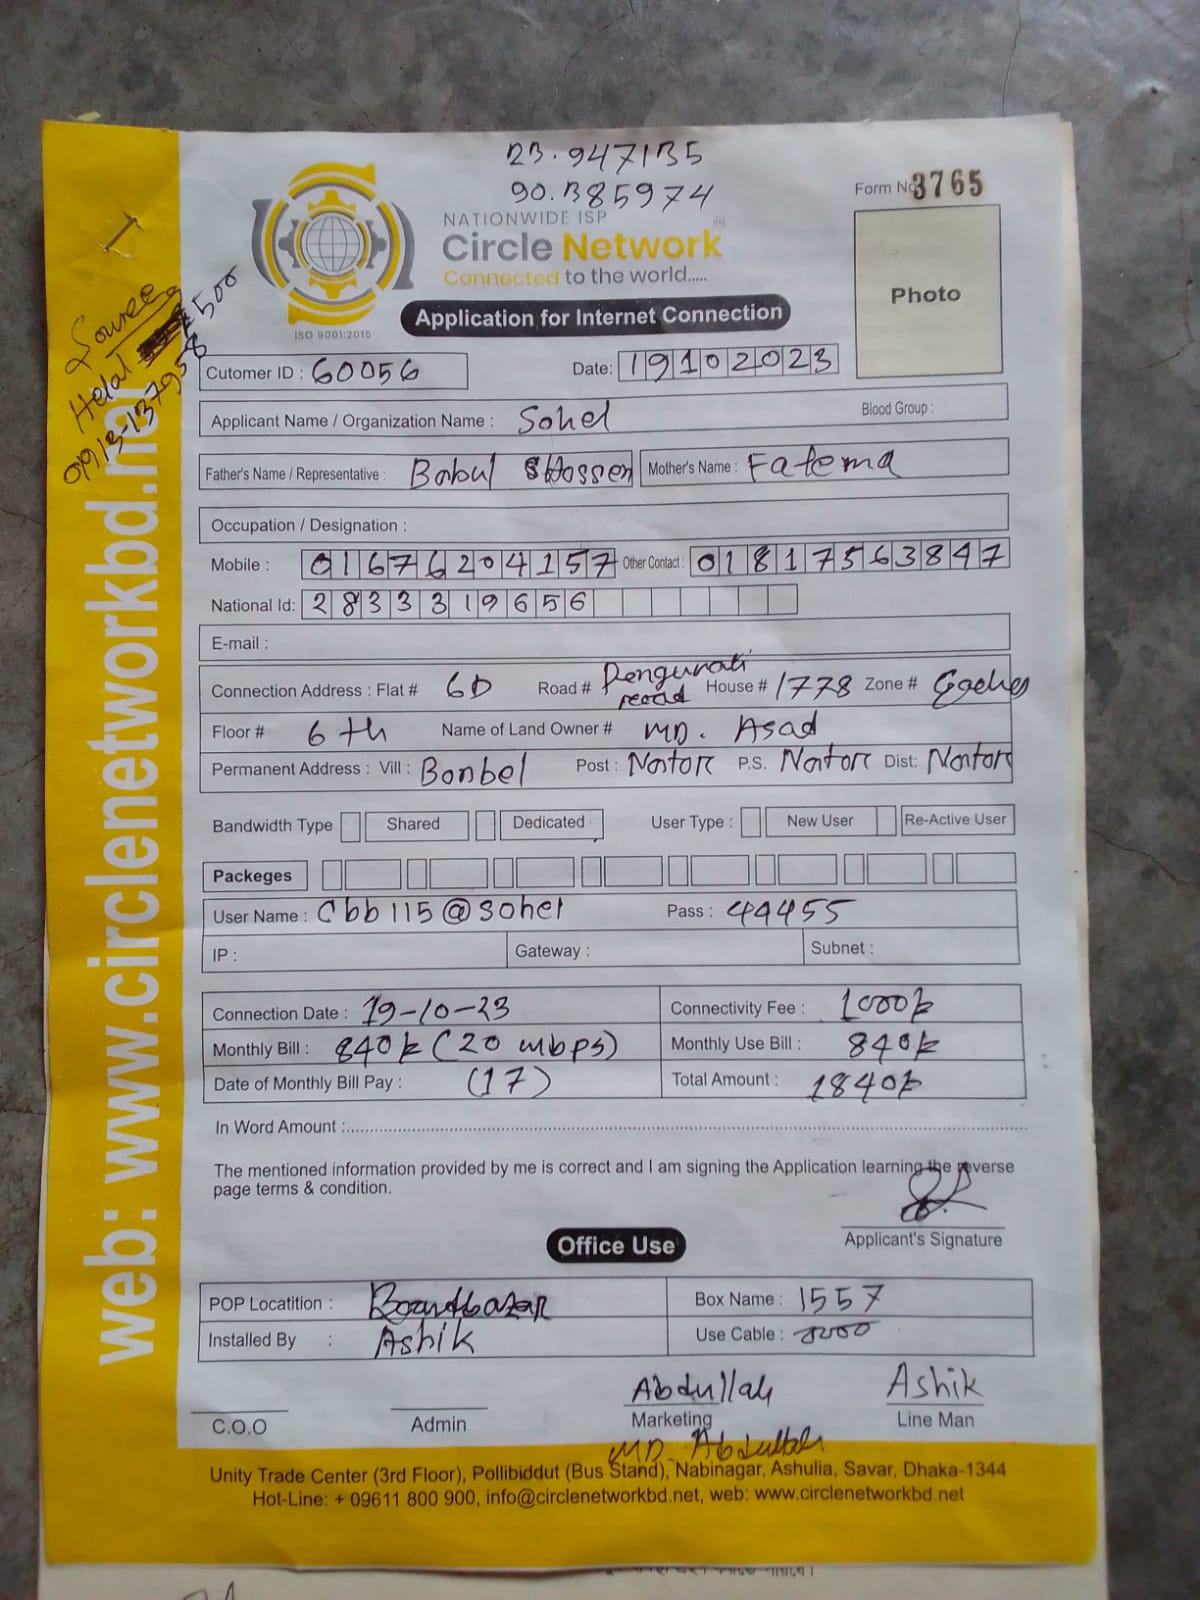 23.947135
90.385974
Form No 3765
NATIONWIDE ISP
Circle Network
Connected to the world.....
ISO 9001:2015
Photo
Application for Internet Connection
Source
Helal 500
web: www.circlenetworkbd.net
Cutomer ID : 60056 Date: 19102023
Applicant Name / Organization Name : Sohel Blood Group :
Father's Name / Representative : Babul Hossen Mother's Name : Fatema
Occupation / Designation :
Mobile : 01676204157 Other Contact : 01817563847
National Id: 2833319656
E-mail :
Connection Address : Flat # 6D Road # road House # 1778 Zone #
Floor # 6th Name of Land Owner # MD. Asad
Permanent Address : Vill : Bonbel Post : Nator P.S. Nator Dist: Nator
Bandwidth Type Shared Dedicated User Type : New User Re-Active User
Packeges
User Name : Cbb115@sohel Pass : 44455
IP : Gateway : Subnet :
Connection Date : 19-10-23 Connectivity Fee : 1000k
Monthly Bill : 840k (20 mbps) Monthly Use Bill : 840k
Date of Monthly Bill Pay : (17) Total Amount : 1840k
In Word Amount :
The mentioned information provided by me is correct and I am signing the Application learning the reverse
page terms & condition.
Applicant's Signature
Office Use
POP Locatition : Boardbazar Box Name : 1557
Installed By : Ashik Use Cable :
Abdullah Ashik
C.O.O Admin Marketing Line Man
MD. Abdullah
Unity Trade Center (3rd Floor), Pollibiddut (Bus Stand), Nabinagar, Ashulia, Savar, Dhaka-1344
Hot-Line: + 09611 800 900, info@circlenetworkbd.net, web: www.circlenetworkbd.net